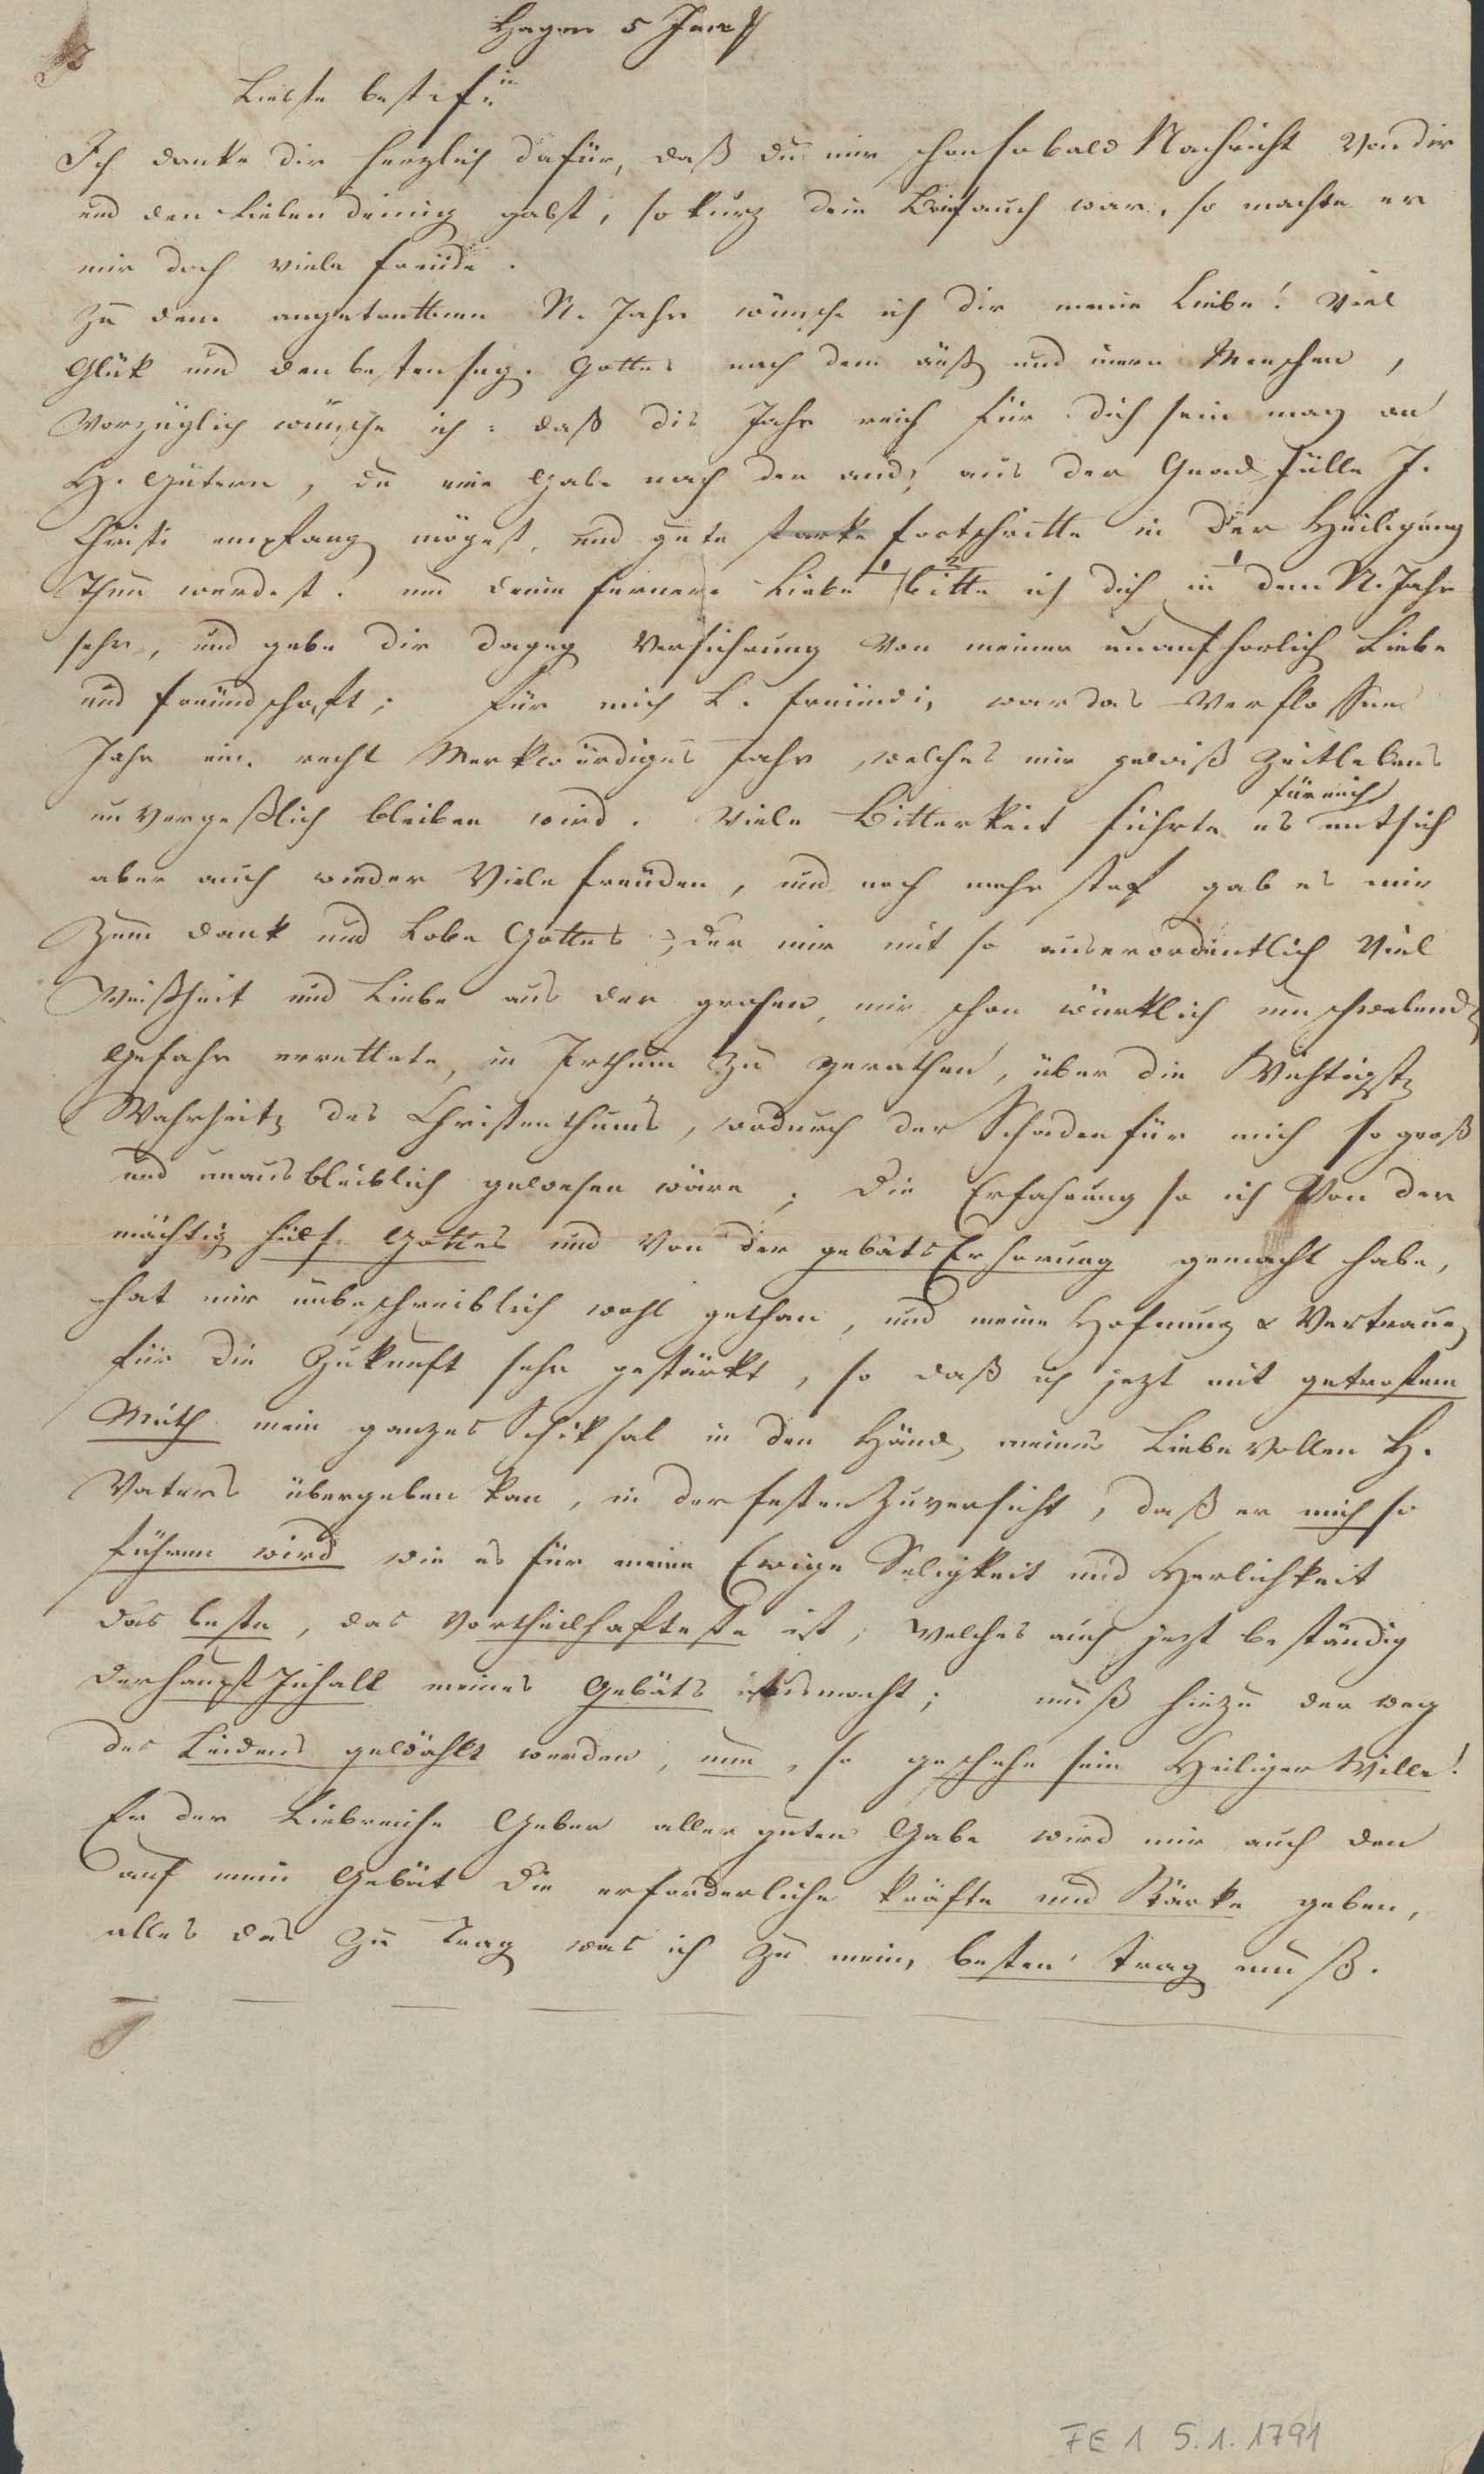 Hagen 5 Janr
Liebste beste fr.in
Ich danke dir herzlich dafür, daß du mir schon so bald Nachricht von dir
und den Lieben deinig gabst, so kurz dein Brief auch war, so machte er
mir doch viele freüde.
Zu dem angetrettenen N. Jahr wünsche ich dir meine Liebe! Viel
Glük und den besten seg. Gottes nach dem äuß und inern Menschen,
Vorzüglich wünsche ich: daß dis Jahr reich für dich sein mag an
H. Gütern, du eine Gabe nach der and, aus der Gnad fülle J.
Christi empfang mögest, und gute starke fortschritte in der Heiligung
Thun werdest. um deine fernere Liebe bitte ich dich in dem N. Jahr
sehr, und gebe dir dageg Versichrung von meiner unaufhorlich Liebe
und freündschaft; für mich L. freündi, war das Verflossene
Jahr ein recht Merkwürdiges Jahr, welches mir gewiß Zeitlebens
unvergeßlich bleiben wird. Viele Bitterkeit führte es für mich mit sich
aber auch wieder Viele freüden, und noch mehr stof gab es mir
Zum dank und Lobe Gottes, der mir mit so auserordentlich Viel
Weißheit und Liebe aus der grosen, mir schon würklich umschwebend
Gefahr errettete, in Irthum zu gerathen, über die Wichtigst
Wahrheit des Christenthums, wodurch der Schaden für mich so groß
und unausbleiblich gewesen wäre; Die Erfahrung so ich Von der
mächtig hülf Gottes und Von der gebäts Erhorung gemacht habe,
hat mir unbeschreiblich wohl gethan, und meine Hofnung & Vertraun
für die Zukunft sehr gestärkt, so daß ich jezt mit getrostem
Muth mein ganzes Schiksal in den Händ meines Liebevollen H.
Vaters übergeben kan, in der festen Zuversicht, daß er mich so
führen wird wie es für meine Ewige Seligkeit und Herlichkeit
das beste, das Vortheilhafteste ist, welches auch jezt beständig
der haupt Inhalt meines Gebäts ausmacht; muß hiezu der weg
des Leidens gewählt werden, nun, so geschehe sein Heiliger Wille!
Er der Liebreiche Geber aller guten Gabe wird mir auch den
auf mein Gebät die erforderliche kräfte und Stärke geben,
alles das zu trag was ich zu mein, besten trag muß.
FE 1 5.1.1791